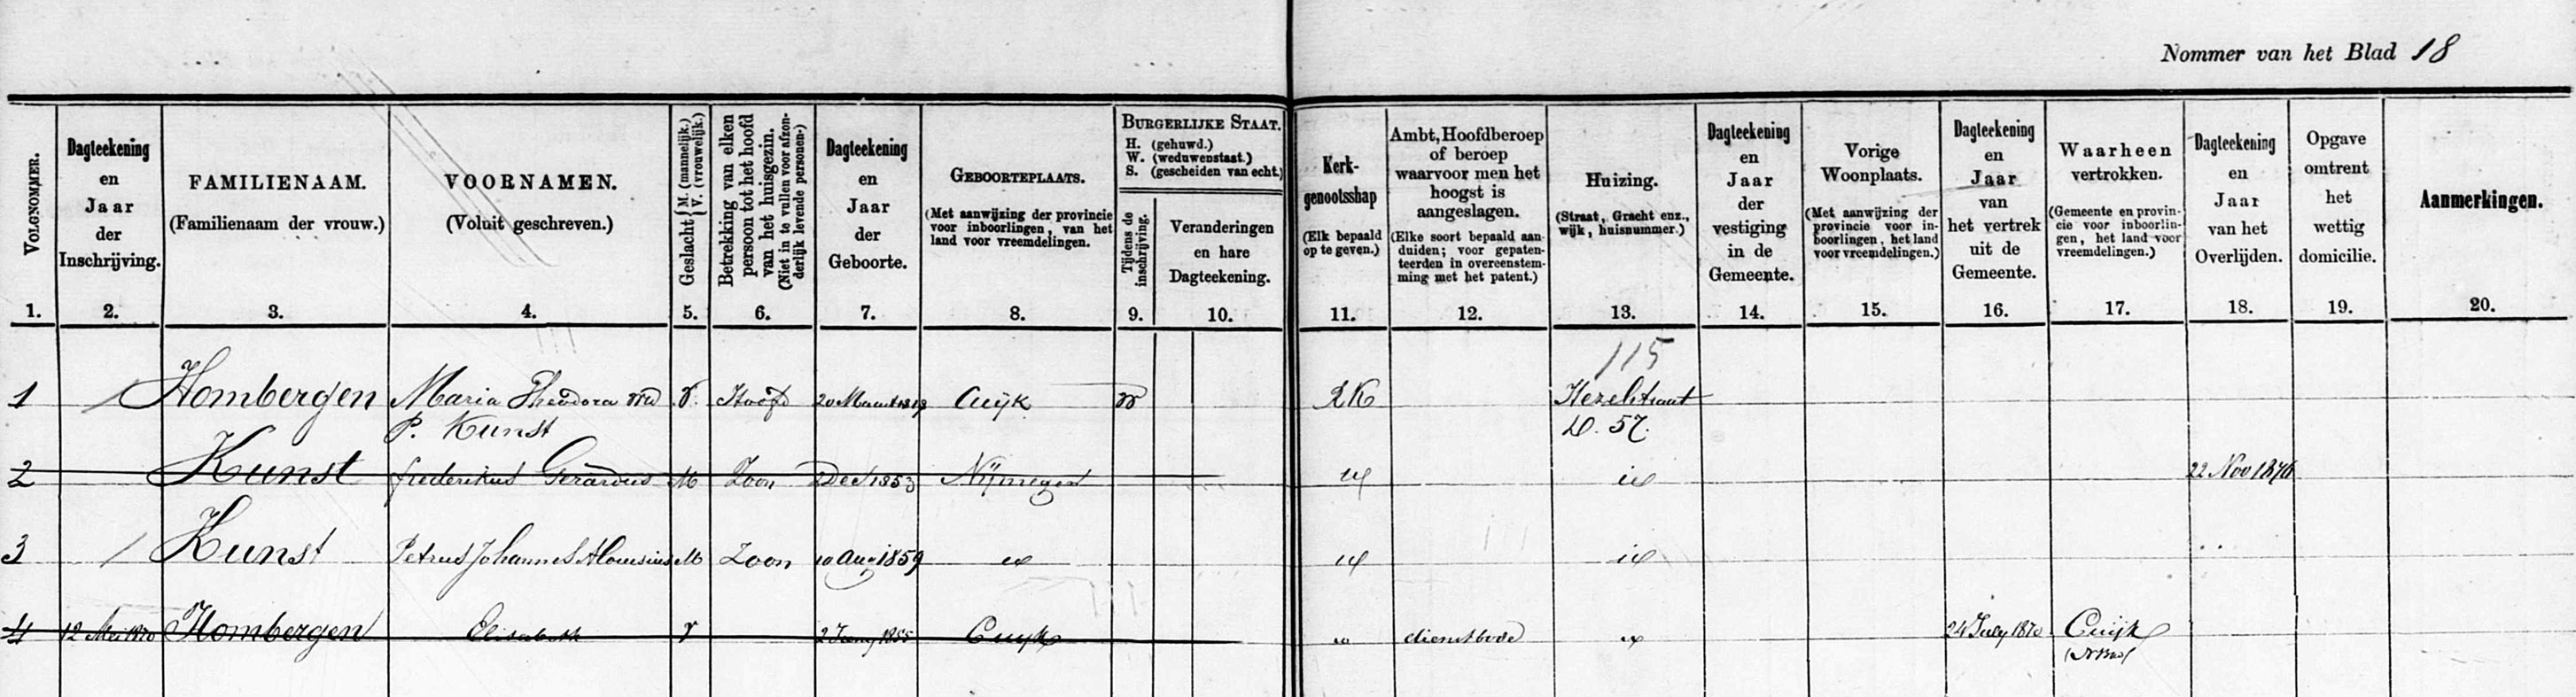 Nommer van het Blad 18
VOLGNOMMER.
Dagteekening
en
Jaar
der
Inschrijving.
FAMILIENAAM.
(Familienaam der vrouw.)
VOORNAMEN.
(Voluit geschreven.)
Geslacht { M. (mannelijk.) V. (vrouwelijk.)
Betrekking van elken
persoon tot het hoofd
van het huisgezin.
(Niet in te vullen voor afzon-
derlijk levende personen.)
Dagteekening
en
Jaar
der
Geboorte.
GEBOORTEPLAATS.
(Met aanwijzing der provincie
voor inboorlingen, van het
land voor vreemdelingen.
BURGERLIJKE STAAT.
H. (gehuwd.)
W. (weduwenstaat.)
S. (gescheiden van echt.)
Tijdens de
inschrijving.
Veranderingen
en hare
Dagteekening.
Kerk-
genootsshap
(Elk bepaald
op te geven.)
Ambt, Hoofdberoep
of beroep
waarvoor men het
hoogst is
aangeslagen.
(Elke soort bepaald aan-
duiden; voor gepaten-
teerden in overeenstem-
ming met het patent.)
Huizing.
(Straat, Gracht enz.,
wijk, huisnummer.)
Dagteekening
en
Jaar
der
vestiging
in de
Gemeente.
Vorige
Woonplaats.
(Met aanwijzing der
provincie voor in-
boorlingen, het land
voor vreemdelingen.)
Dagteekening
en
Jaar
van
het vertrek
uit de
Gemeente.
Waarheen
vertrokken.
(Gemeente en provin-
cie voor inboorlin-
gen, het land voor
vreemdelingen.)
Dagteekening
en
Jaar
van het
Overlijden.
Opgave
omtrent
het
wettig
domicilie.
Aanmerkingen.
1. 2. 3. 4. 5. 6. 7. 8. 9. 10. 11. 12. 13. 14. 15. 16. 17. 18. 19. 20.
115
1 Hombergen Maria Theodora Wd V. Hoofd 20 Maart Cuijk W RK Hezelstraat
P. Kunst D. 57.
2 Kunst frederikus Gerardus M Zoon 2 Dec 1853 Nijmegen id id 22 Nov 1876
3 Kunst Petrus Johannes Aloijsius M Zoon 10 Aug 1859 id id id
4 12 Mei 1870 Hombergen Elisabeth V 1855 Cuijk id dienstbode id 24 July 1870 Cuijk
(NBra)